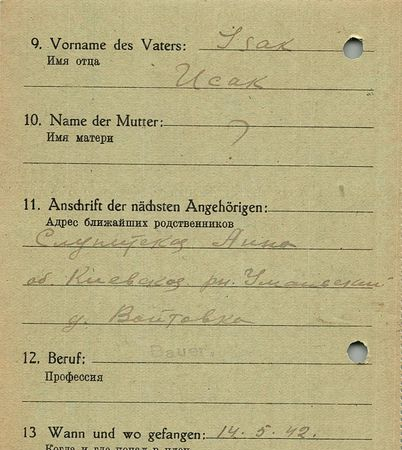 9. Vorname des Vaters: Isak
Имя отца
Исак
10. Name der Mutter: ?
Имя матери
11. Anschrift der nächsten Angehörigen:
Адрес ближайших родственников
Анна
об. Киевская рн. Уманский
д. Войтовка
12. Beruf: Bauer.
Профессия
13 Wann und wo gefangen: 14.5.42.
Когда и где попал в плен